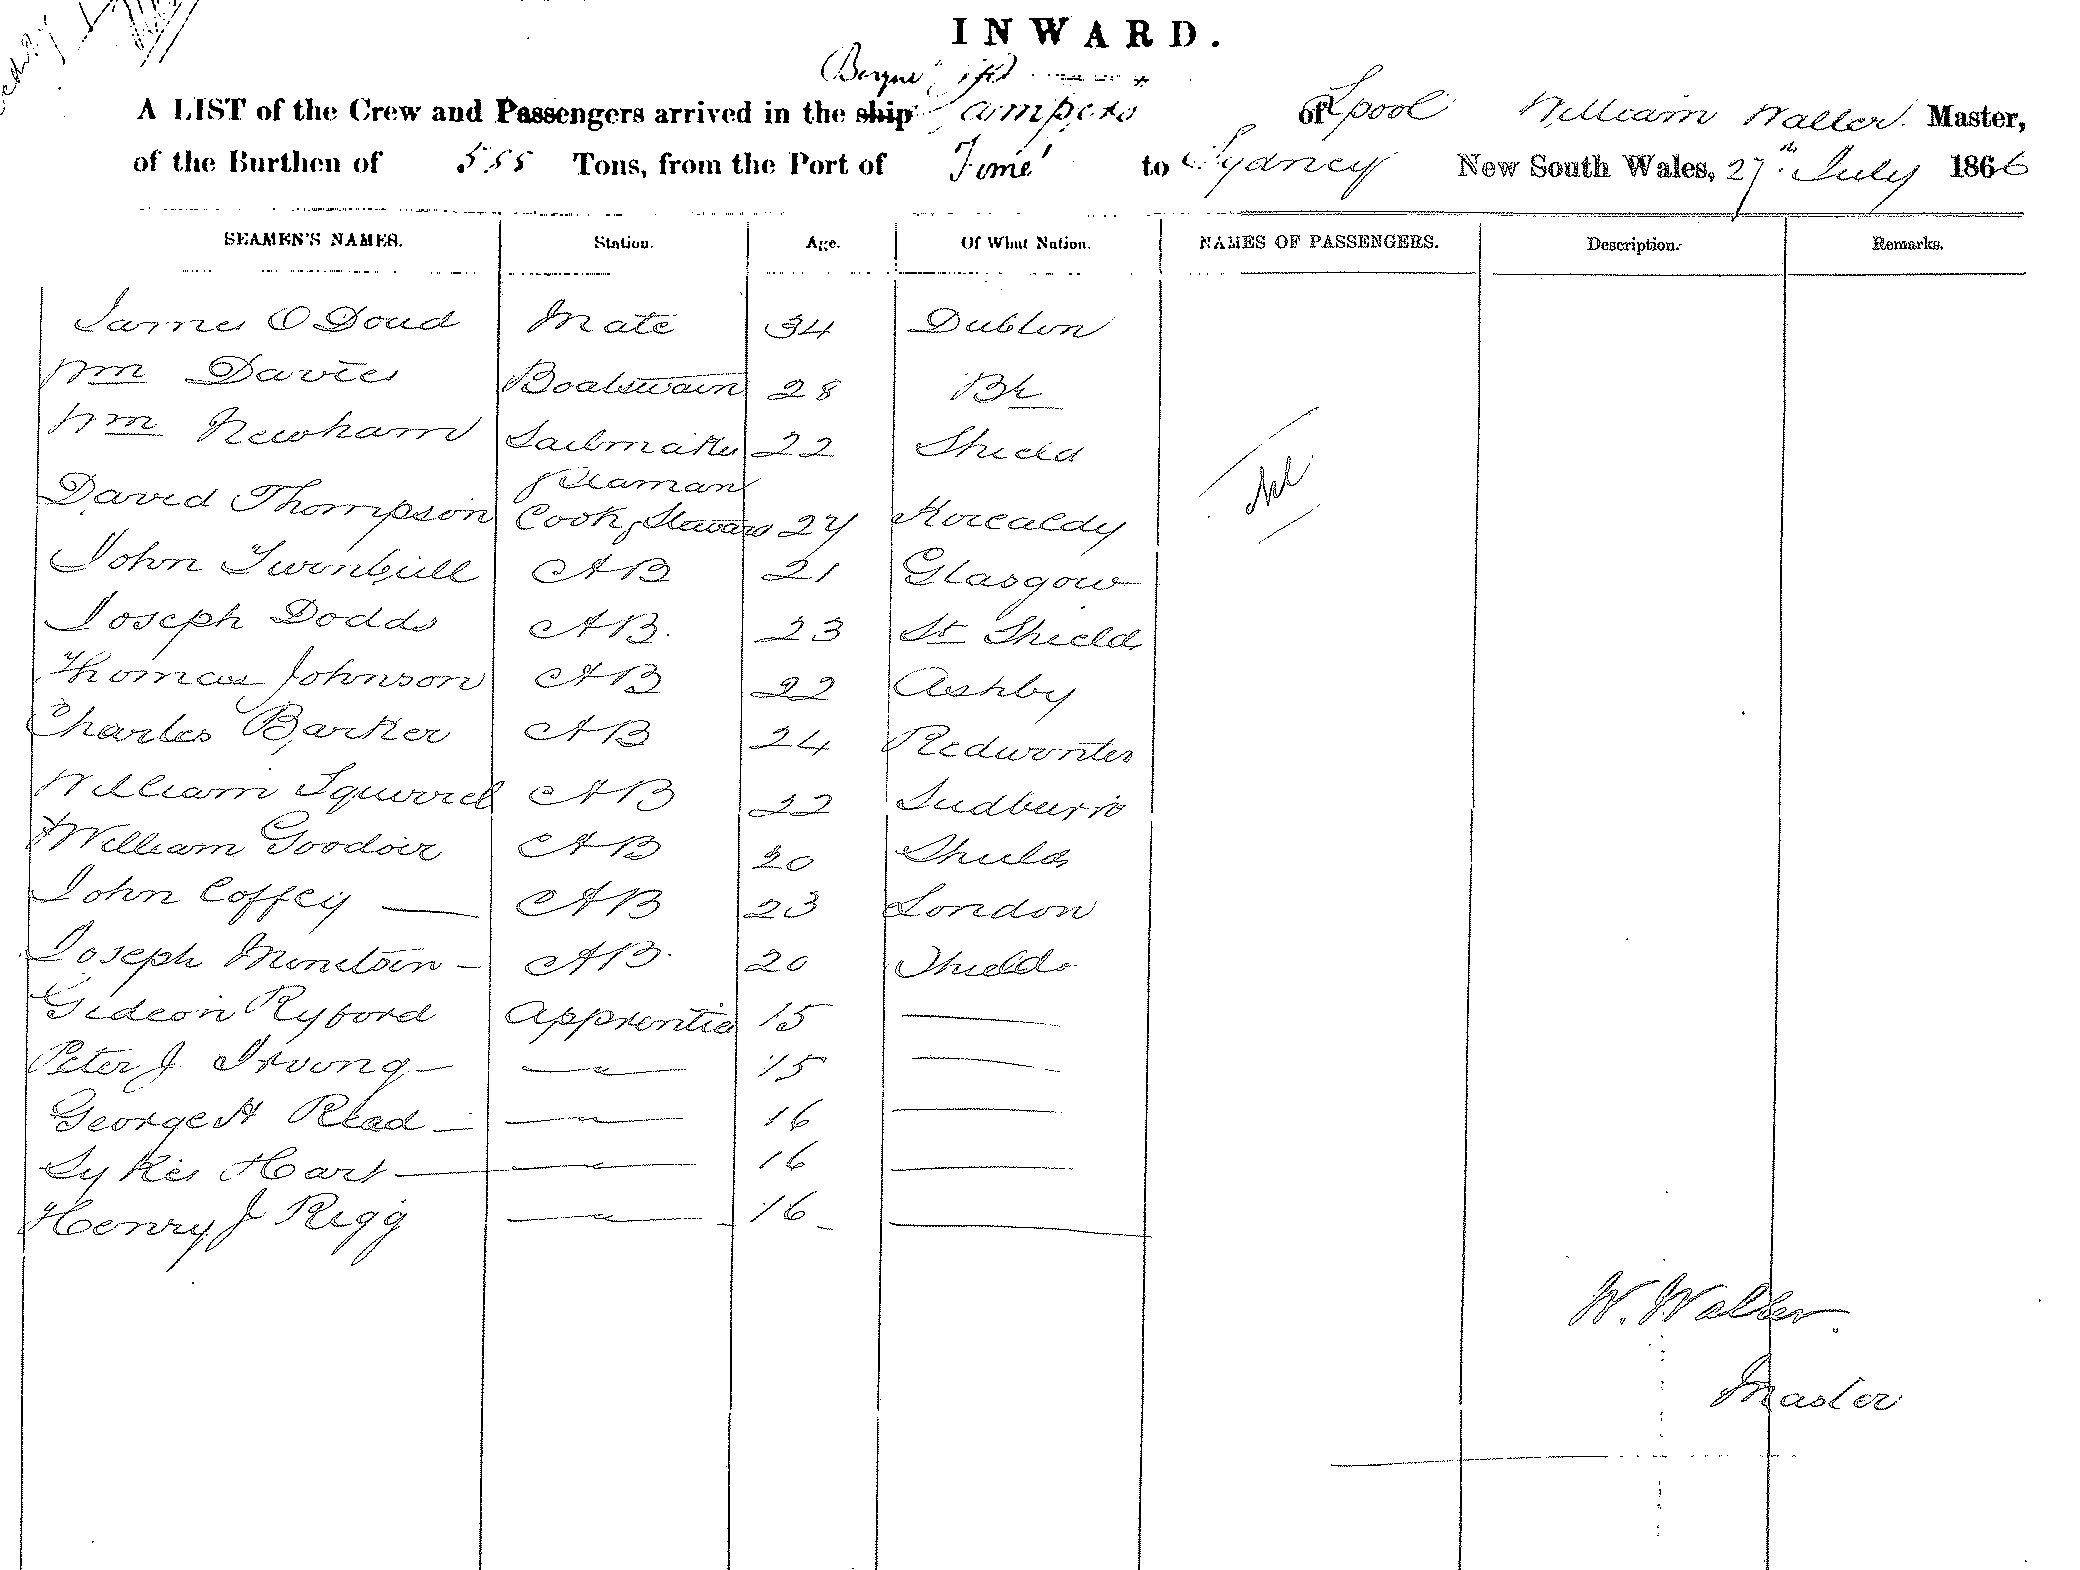 INWARD.
Barque
A LIST of the Crew and Passengers arrived in the ship of L'pool William Waller Master,
of the Burthen of 555 Tons, from the Port of to Sydney New South Wales, 27th July 1866
SEAMEN'S NAMES. Station. Age. Of What Nation. NAMES OF PASSENGERS. Description. Remarks.
James O Doud Mate 34 Dublin
Wm Davies Boatswain 28
Wm Newham Sailmaker 22 Shield
& Seaman
David Thompson Cook & Steward 27 Kircaldy
Nil
John Turnbull AB 21 Glasgow
Joseph Dodds AB. 23 St Shield
Thomas Johnson AB 22 Ashby
Charles Barker AB 24
William Squirrel AB 22
William Goodoir AB 20 Shields
John Coffey — AB 23 London
Joseph — AB. 20 Shields
Gideon Ryford Apprentice 15 —
Peter J Irving — " 15 —
George H Read — " 16 —
Sykes Hart — " 16 —
Henry J Rigg — " 16 —
W. Waller.
Master